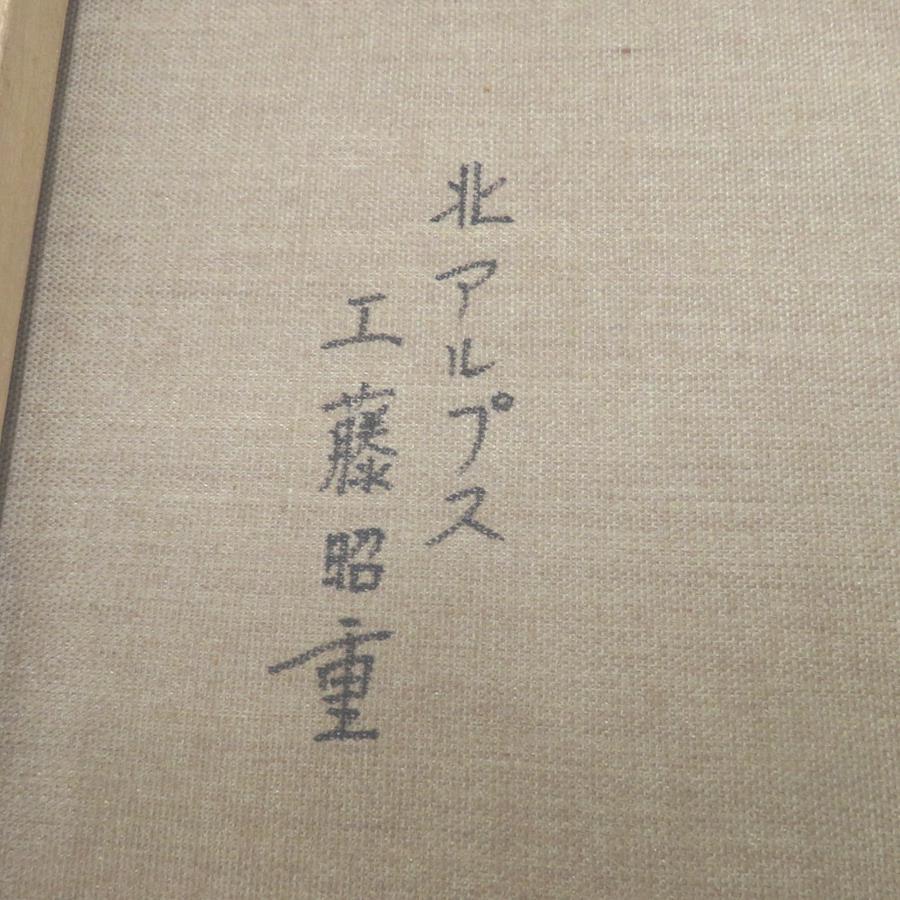 北アルプス
工藤昭重